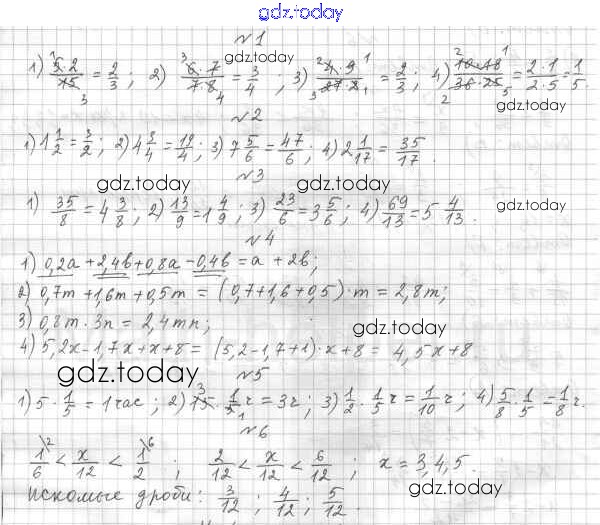 gdz.today
№1
1) 5·2/15 = 2/3; 2) 6·7/7·8 = 3/4; 3) 4·9/27·2 = 2/3; 4) 10·18/36·25 = 2·1/2·5 = 1/5.
gdz.today
gdz.today
№2
1) 1 1/2 = 3/2; 2) 4 3/4 = 19/4; 3) 7 5/6 = 47/6; 4) 2 1/17 = 35/17.
gdz.today gdz.today
№3
1) 35/8 = 4 3/8; 2) 13/9 = 1 4/9; 3) 23/6 = 3 5/6; 4) 69/13 = 5 4/13.
gdz.today
№4
1) 0,2a + 2,4b + 0,8a - 0,4b = a + 2b;
2) 0,7m + 1,6m + 0,5m = (0,7+1,6+0,5)·m = 2,8m;
3) 0,8m · 3n = 2,4mn;
gdz.today
4) 5,2x - 1,7x + x + 8 = (5,2 - 1,7 + 1)·x + 8 = 4,5x + 8.
gdz.today
№5
1) 5 · 1/5 = 1 час; 2) 15 · 1/5 г = 3 г; 3) 1/2 · 1/5 г = 1/10 г; 4) 5/8 · 1/5 = 1/8 г.
№6
1/6 < x/12 < 1/2; 2/12 < x/12 < 6/12; x = 3, 4, 5.
искомые дроби: 3/12; 4/12; 5/12.
gdz.today